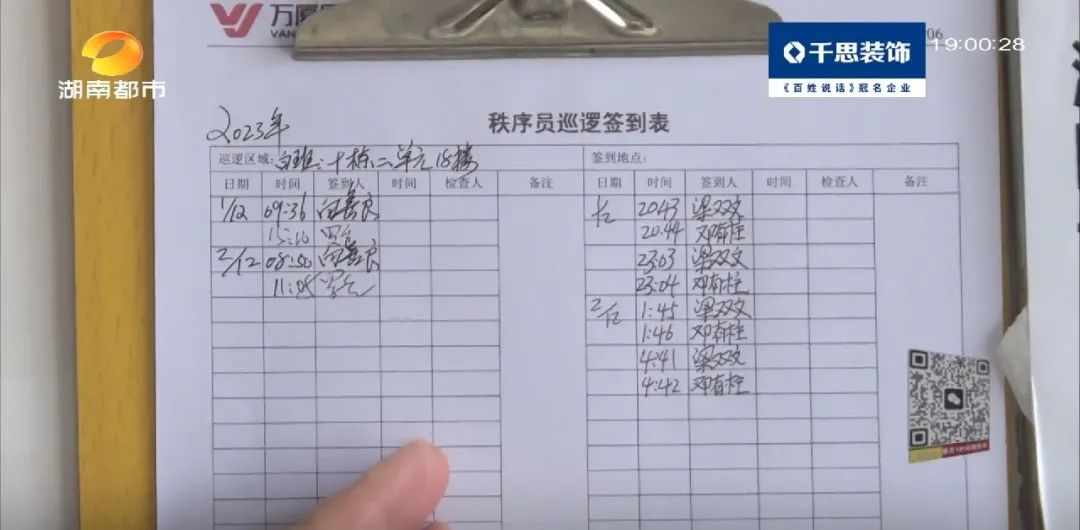 湖南都市
万厦
VAN
06
千思装饰
《百姓说话》冠名企业
19:00:28
2023年
秩序员巡逻签到表
巡逻区域: 白班: 十栋二单元18楼 签到地点:
日期 时间 签到人 时间 检查人 备注 日期 时间 签到人 时间 检查人 备注
1/12 09:36 20:43 梁双文
20:44 邓有柱
2/12 08:50 23:03 梁双文
11:05 23:04 邓有柱
2/12 1:45 梁双文
1:46 邓有柱
4:41 梁双文
4:42 邓有柱